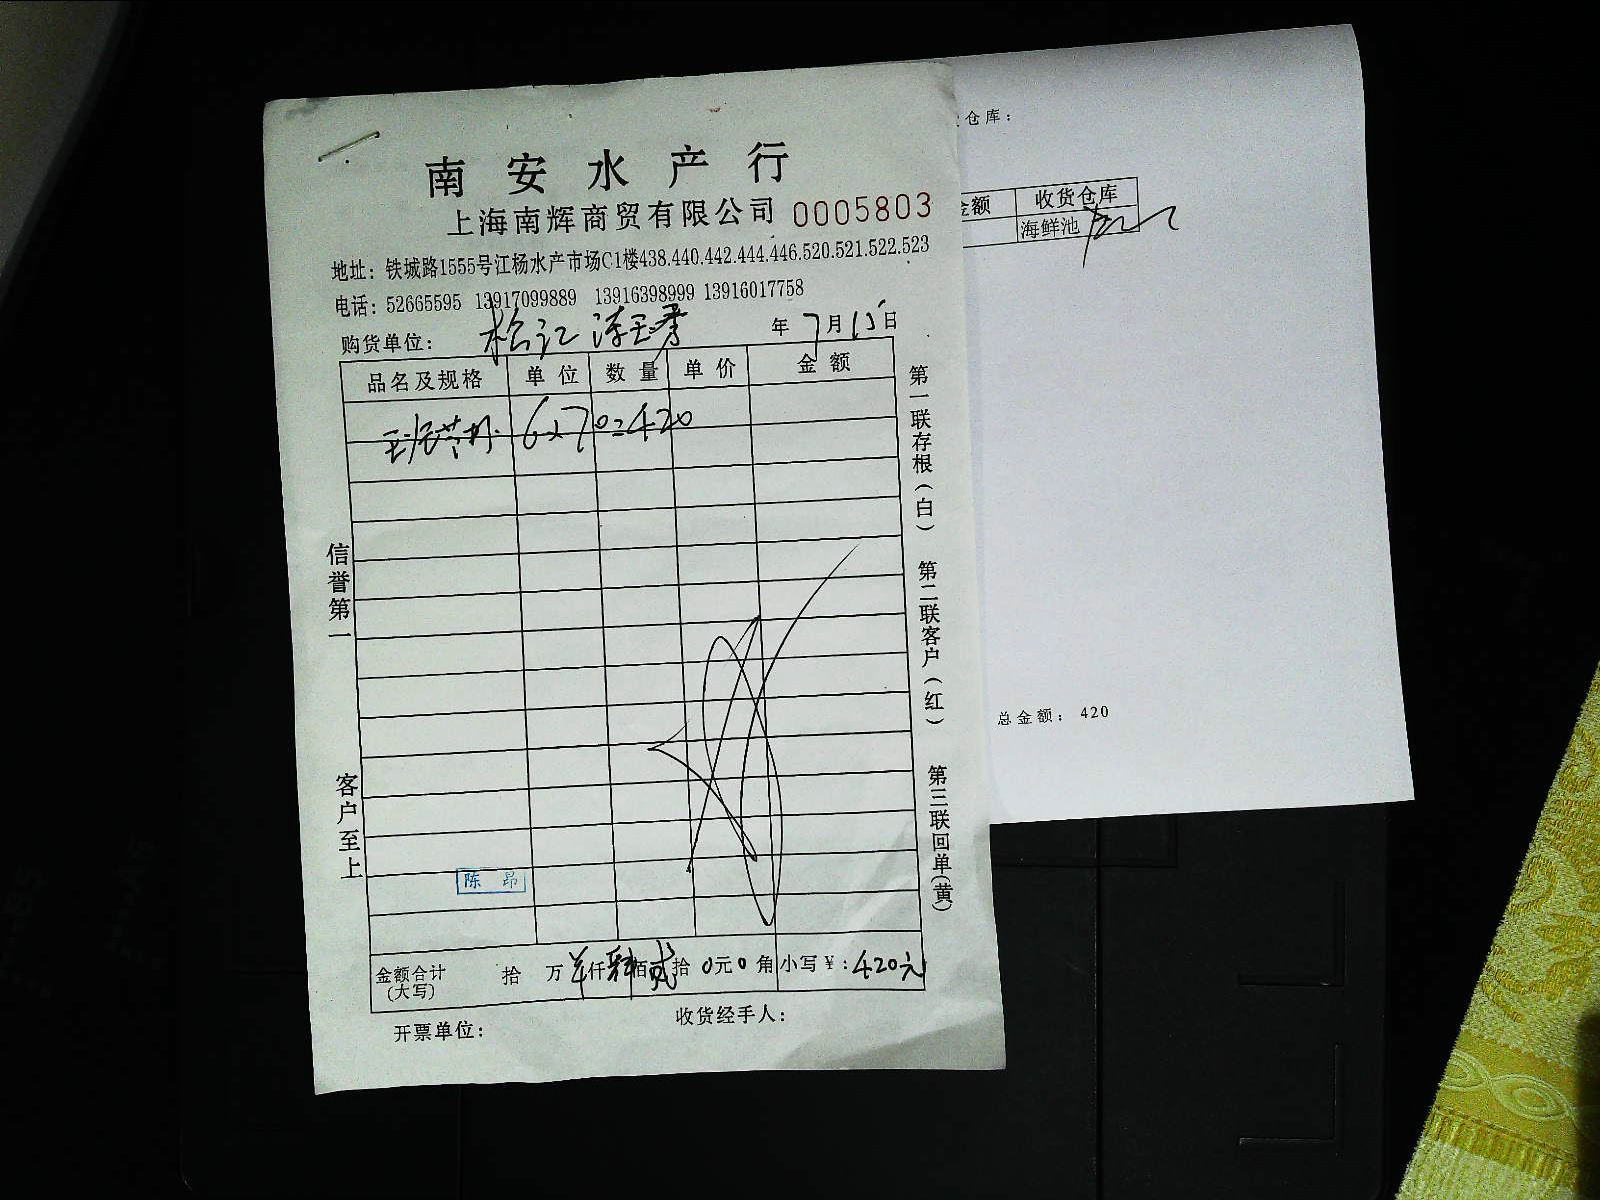 南安水产行
上海南辉商贸有限公司 0005803
地址：铁城路1555号江杨水产市场C1楼438.440.442.444.446.520.521.522.523
电话：52665595 13917099889 13916398999 13916017758
购货单位： 松江 年 7 月 15 日
品名及规格 单位 数量 单价 金额
6×70=420
信誉第一
客户至上
第一联存根(白)
第二联客户(红)
第三联回单(黄)
陈昂
金额合计 拾 万 仟 肆 佰 贰 拾 0 元 0 角 小写¥：420元
(大写)
开票单位：
收货经手人：
仓库：
金额 收货仓库
海鲜池
总金额： 420